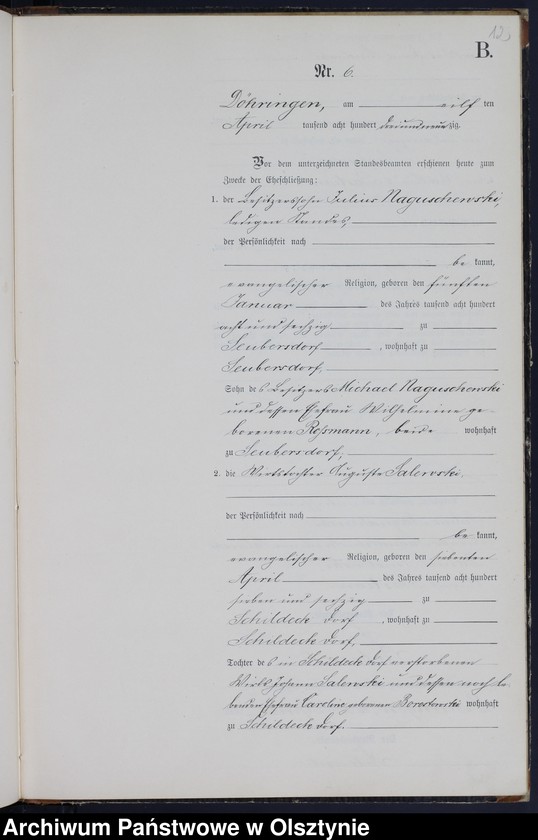 B.
Nr. 6.
Döhringen, am eilf ten
April tausend acht hundert dreiundneunzig.
Vor dem unterzeichneten Standesbeamten erschienen heute zum
Zwecke der Eheschließung:
1. der Besitzerssohn Julius Naguschewski,
ledigen Standes,
der Persönlichkeit nach
be kannt,
evangelischer Religion, geboren den fünften
Januar des Jahres tausend acht hundert
acht und sechzig zu
Seubersdorf, wohnhaft zu
Seubersdorf,
Sohn des Besitzers Michael Naguschewski
und dessen Ehefrau Wilhelmine ge-
borenen Roßmann, beide wohnhaft
zu Seubersdorf,
2. die Wirtstochter Auguste Salewski,
der Persönlichkeit nach
be kannt,
evangelischer Religion, geboren den siebenten
April des Jahres tausend acht hundert
sieben und sechzig zu
Schildeck Dorf, wohnhaft zu
Schildeck Dorf,
Tochter des in Schildeck Dorf verstorbenen
Wirts Johann Salewski und dessen noch le-
benden Ehefrau Caroline geborenen wohnhaft
zu Schildeck Dorf.
Archiwum Państwowe w Olsztynie